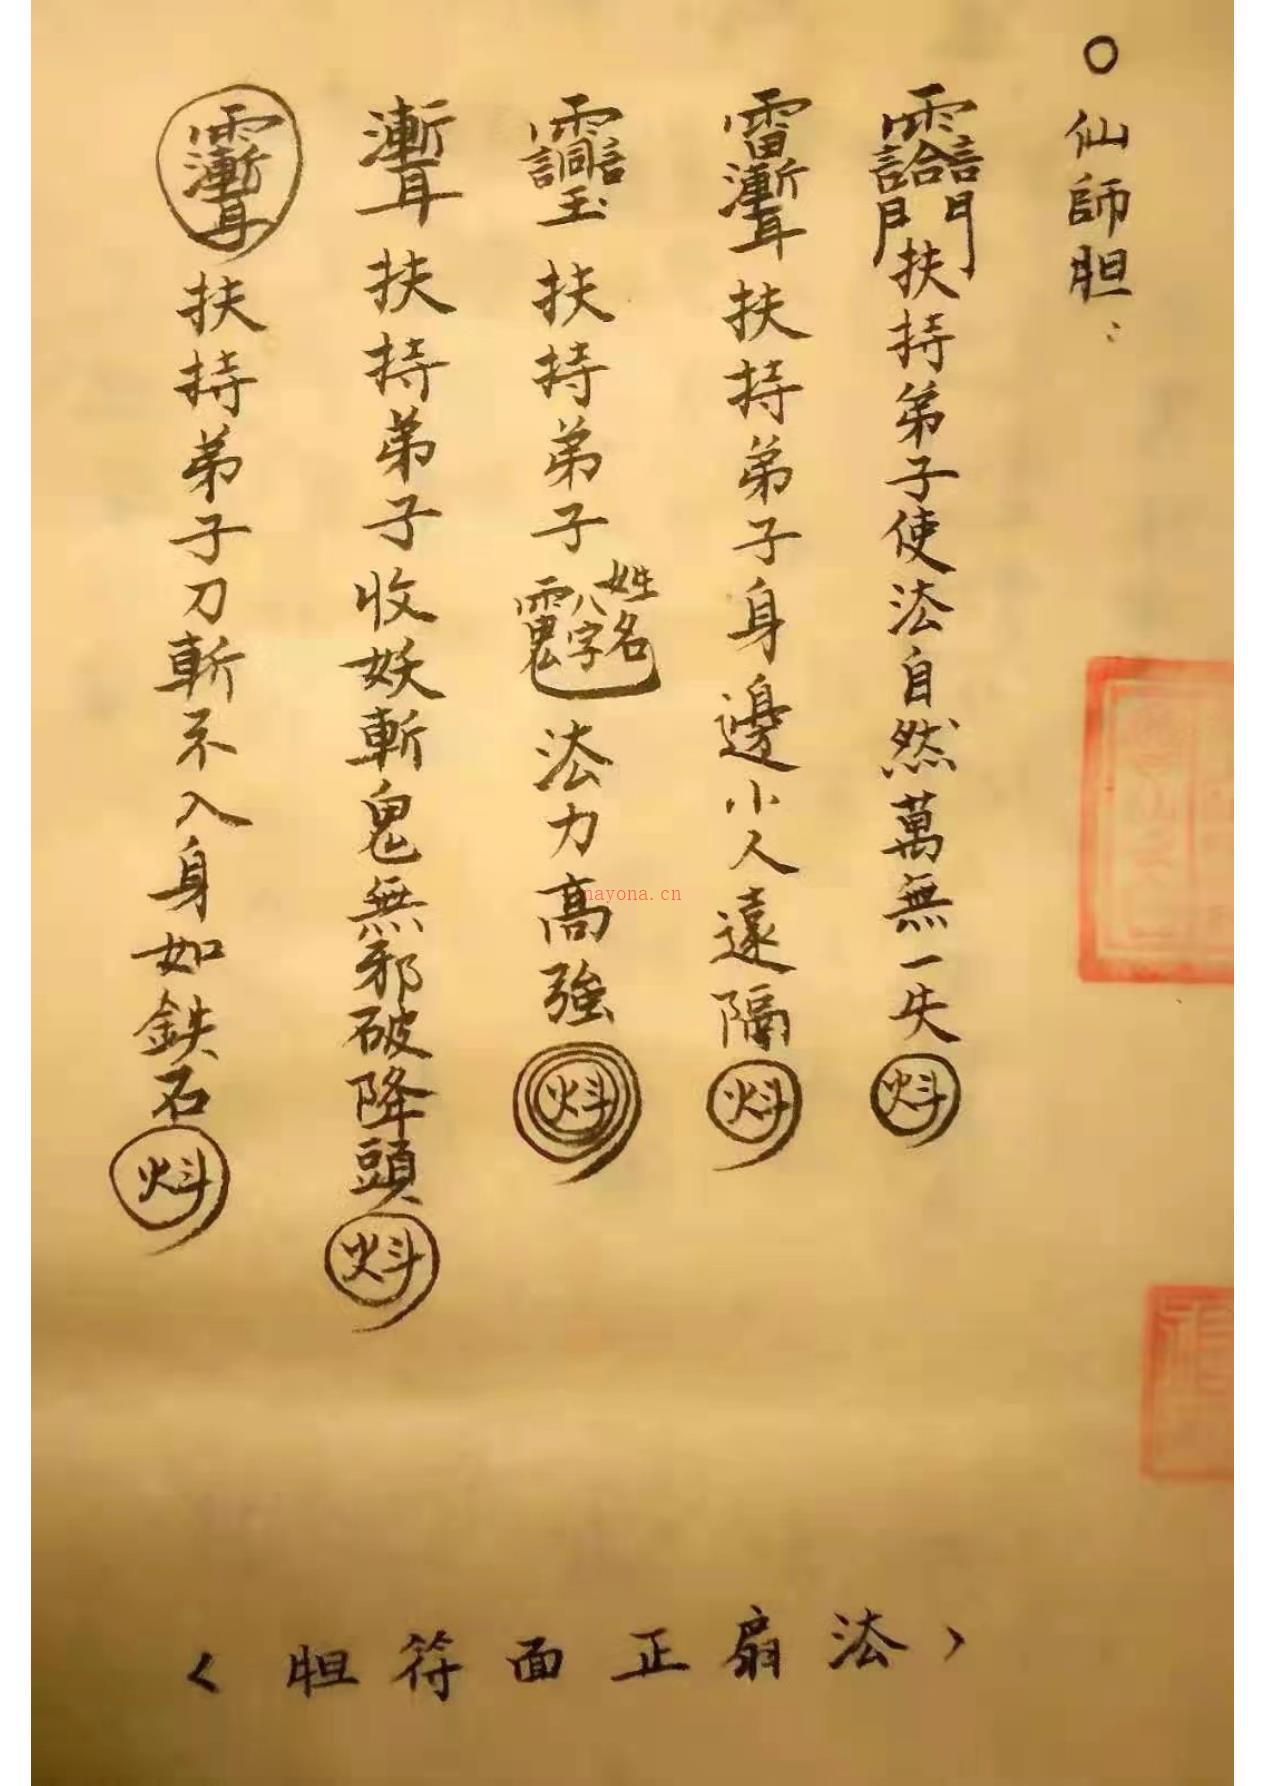 仙師胆:
扶持弟子使法自然萬無一失
扶持弟子身邊小人遠隔
扶持弟子 姓名 八字 法力高強
扶持弟子收妖斬鬼無邪破降頭
扶持弟子刀斬不入身如鉄石
nayona.cn
<法扇正面符胆>